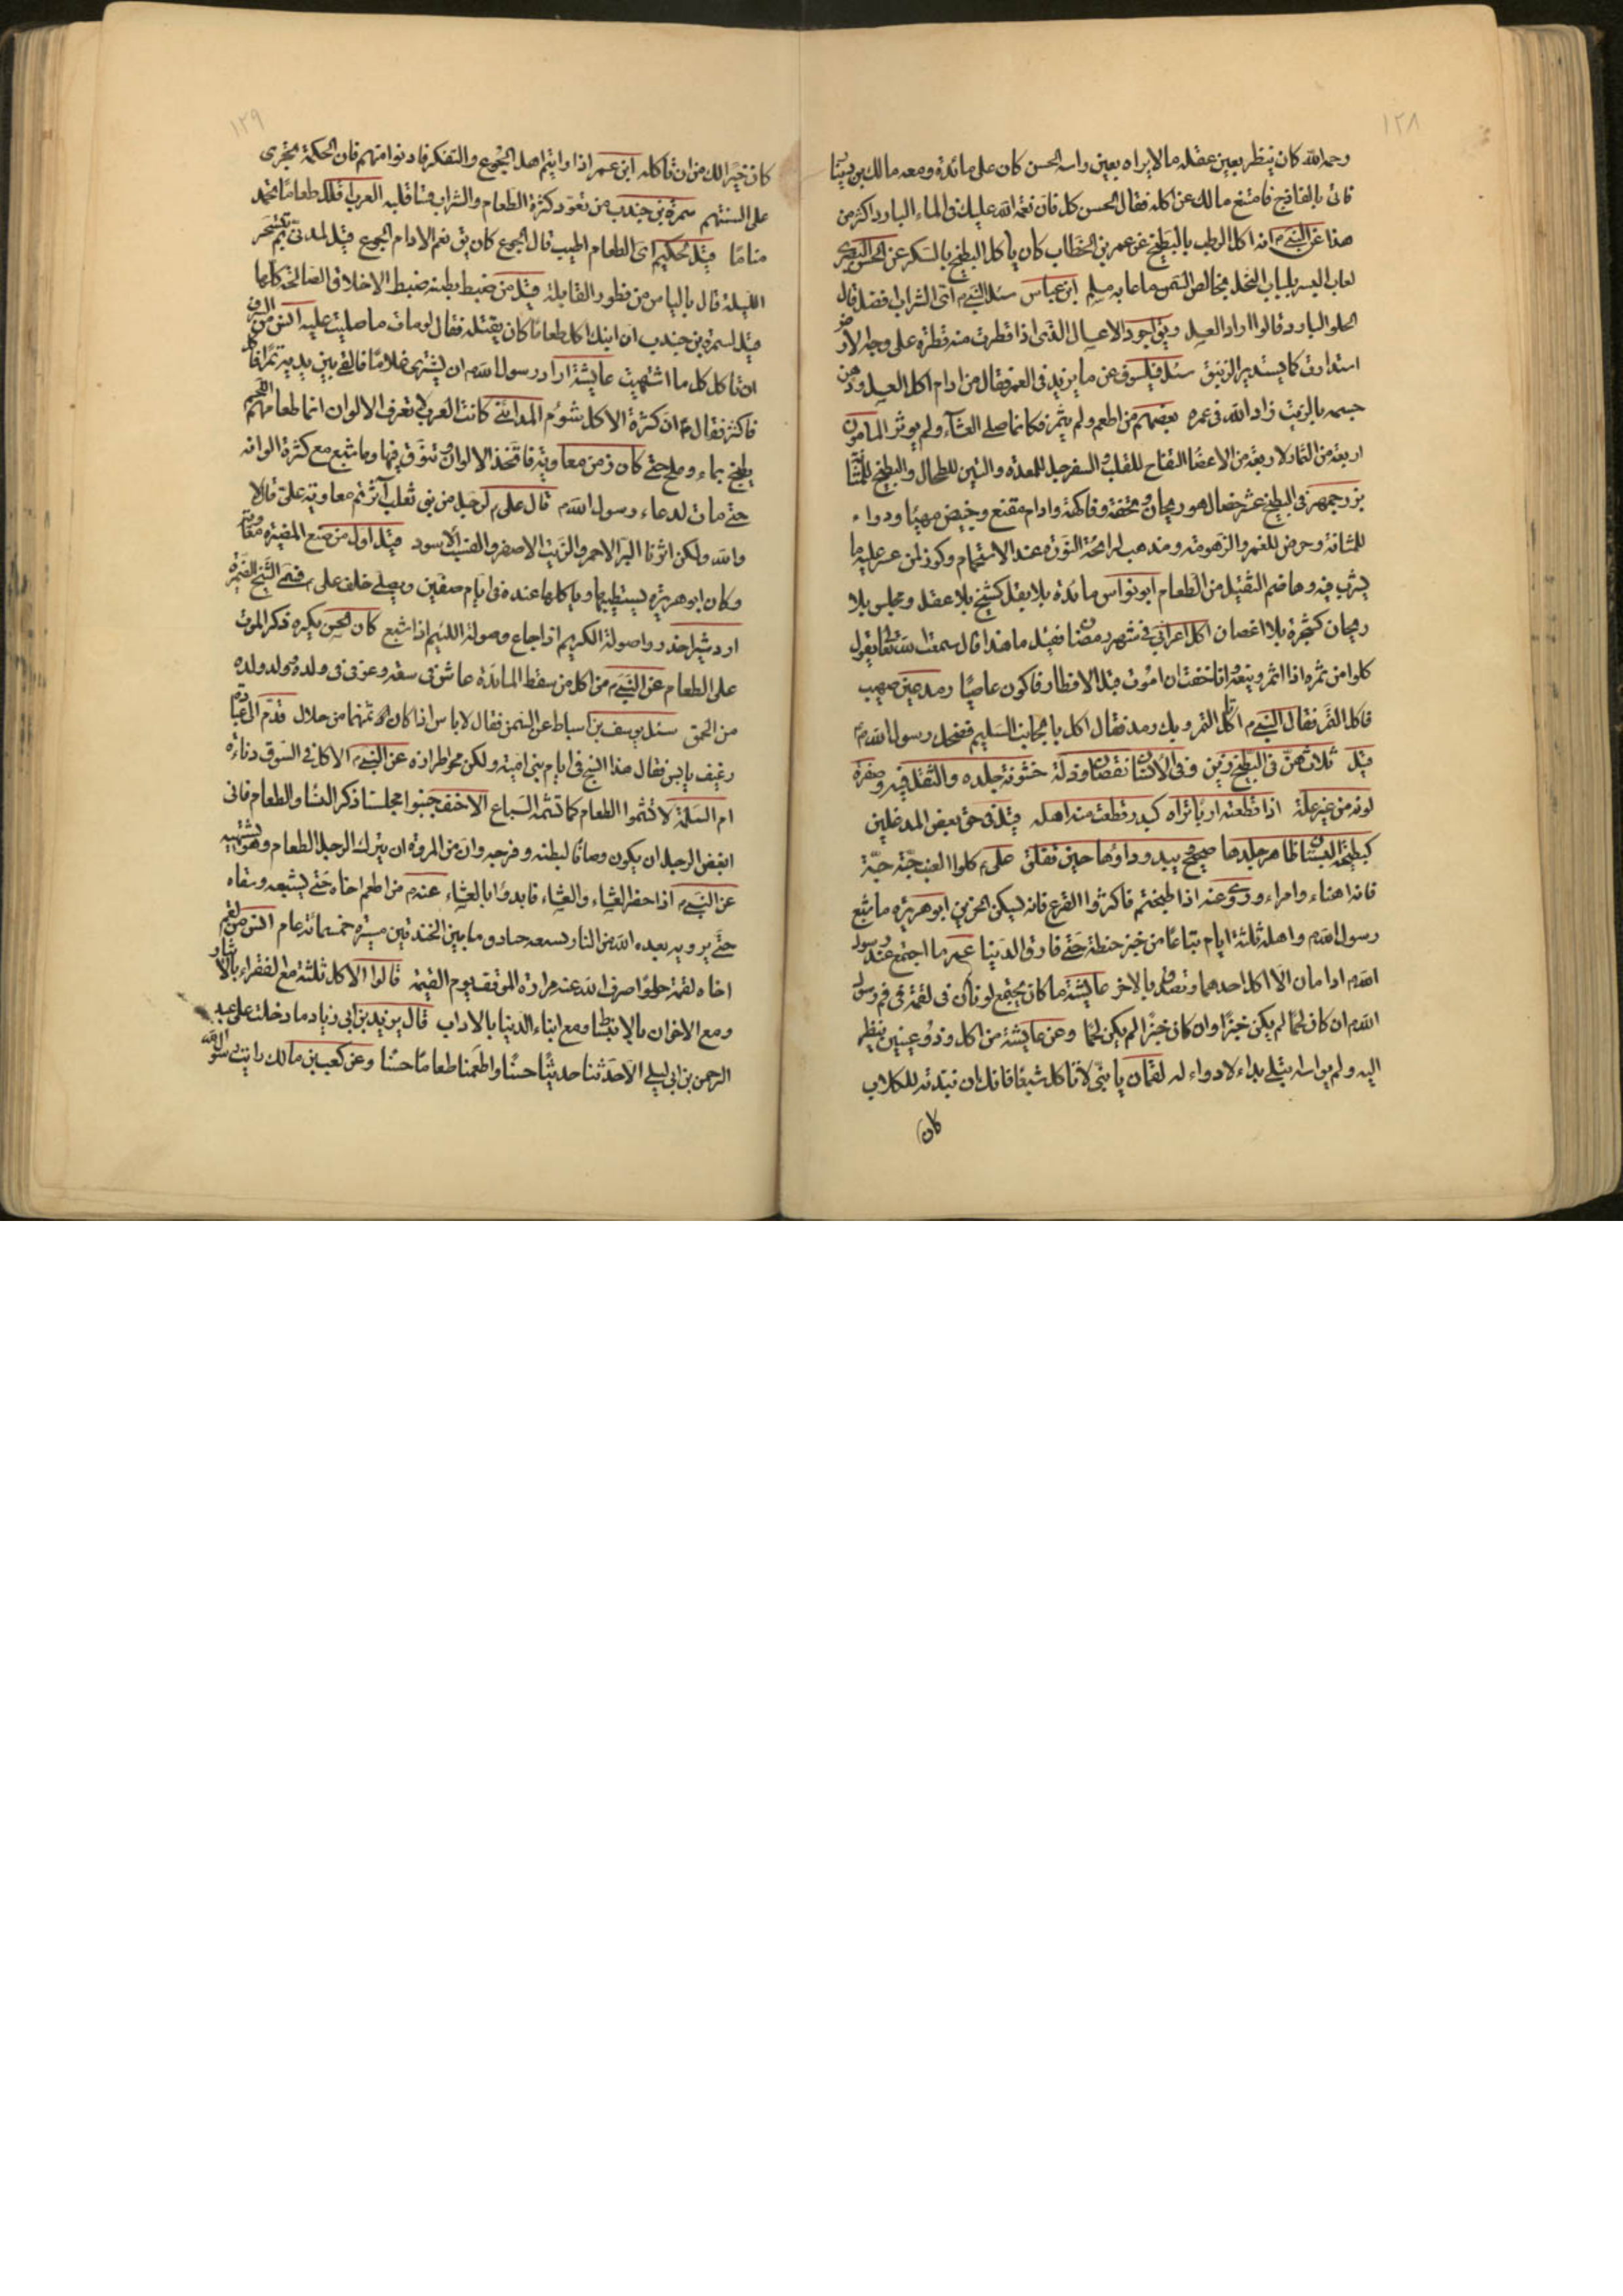 ١٢٨
رحمه الله كان ينظر بعين عقله مالا يراه بعين راسه الحسن كان على مائدة ومعه مالك بن دينار
فاتى بالفالوذج فامتنع مالك عن اكله فقال الحسن كل فان نعمة الله عليك فى الماء البارد اكثر من
هذا عن النبى م انه اكل الرطب بالبطيخ عن عمر بن الخطاب كان ياكل البطيخ بالسكر عن الحسن البصرى
لعاب البر بلباب النحل بخالص السمن ما عابه مسلم ابن عباس سئل النبى م اى الشراب افضل قال
الحلو البارد قالوا اراد العسل ويق اجود الاعسال الذى اذا قطرت منه قطرة على وجه الارض
استدارت كما يستدير الزيبق سئل فيلسوف عن ما يزيد فى العمر فقال من ادام اكل العسل ودهن
جسمه بالزيت زاد الله فى عمره بعضهم من اطعم ولم يثمر فكانما صلى العشاء ولم يوتر المامون
اربعة من الثمار لاربعة من الاعضا التفاح للقلب والسفرجل للمعدة والتين للطحال والبطيخ للمثانة
بزرجمهر فى البطيخ عشر خصال هو ريحان وتحفة وفاكهة وادام مقنع وخبيص مهيا ودواء
للمثانة وحرض للغمر والزهومة ومذهب لرائحة النورة عند الاستحمام وكوز لمن عسر عليه ما
يشرب فيه وهاضم الثقيل من الطعام ابو نواس مائدة بلا بقل كشيخ بلا عقل ومجلس بلا
ريحان كشجرة بلا اغصان اكل اعرابى فى شهر رمضان فقيل ما هذا قال سمعت الله تعالى يقول
كلوا من ثمره اذا اثمر وينعه وانا خفت ان اموت قبل الافطار فاكون عاصيا رمد عين صهيب
فاكل التمر فقال النبى م اتاكل التمر وبك رمد فقال اكل بالجانب السليم فضحك رسول الله م
قيل ثلاث هن فى البطيخ زين وفى الانسان نقصان وذلة خشونة جلده والثقل فيه وصفرة
لونه من غير علة اذا قطعته اربا تراه كبدر قطعت منه اهله قيل فى حق بعض المدغلين
كبطيخة البستان ظاهر جلدها صحيح ويبدو داؤها حين تفلق على م كلوا العنب حبة حبة
فانه اهناء وامراء وروى عنه اذا طبختم فاكثروا القرع فانه يسكن الحزين ابو هريرة ما شبع
رسول الله م واهله ثلثة ايام تباعا من خبز حنطة حتى فارق الدنيا عمر ما اجتمع عند رسول
الله م ادامان الا اكل احدهما وتصدق بالاخر عايشة ما كان يجتمع لونان فى لقمة فى فم رسول
الله م ان كان لحما لم يكن خبزا وان كان خبزا لم يكن لحما وعن عايشة من اكل وذو عينين ينظر
اليه ولم يواسه ابتلى بداء لا دواء له لقمان يا بنى لا تاكل شبعا فانك ان تنبذته للكلاب
كان
١٢٩
كان خيرا لك من ان تاكله ابن عمر اذا رايتم اهل الجوع والتفكر فادنوا منهم فان الحكمة تجرى
على السنتهم سمرة بن جندب من تعود كثرة الطعام والشراب قسا قلبه العرب اقلل طعاما تحمد
مناما قيل لحكيم اى الطعام اطيب قال الجوع كان يق نعم الادام الجوع قيل لمدنى بم تتسحر
الليلة قال بالياس من فطور القابلة قيل من ضبط بطنه ضبط الاخلاق الصالحة كلها
قيل لسمرة بن جندب ان ابنك اكل طعاما كان يقتله فقال لو مات ما صليت عليه انس من السرف
ان تاكل كل ما اشتهيت عايشة اراد رسول الله م ان يشترى غلاما فالقى بين يديه تمرا فاكل
فاكثر فقال م ان كثرة الاكل شوم المدائنى كانت العرب لا تعرف الالوان انما طعامهم اللحم
يطبخ بماء وملح حتى كان زمن معاوية فاتخذ الالوان وتنوق فيها وما شبع مع كثرة الوانه
حتى مات لدعاء رسول الله م قال على م لرجل من بنى ثعلب آثرتم معاوية على قال لا
والله ولكن اثرنا البر الاحمر والزيت الاصفر والعنب الاسود قيل اول من صنع المضيرة معاوية
وكان ابو هريرة يستطيبها وياكلها عنده فى ايام صفين ويصلى خلف على م فسمى الشيخ المضيرة
اردشير احذروا صولة الكريم اذا جاع وصولة اللئيم اذا شبع كان الحسن يكره ذكر الموت
على الطعام عن النبى م من اكل من سقط المائدة عاش فى سعة وعوفى فى ولده وولد ولده
من الحمق سئل يوسف بن اسباط عن السمن فقال لا باس اذا كان ثمنهما من حلال قدم الى عبادة
رغيف يابس فقال هذا النسج فى ايام بنى امية ولكن محو طرازه عن النبى م الاكل فى السوق دناءة
ام السلمة لا تشموا الطعام كما تشمه السباع الاحنف جنبوا مجلسنا ذكر النساء والطعام فانى
ابغض الرجل ان يكون وصافا لبطنه وفرجه وان من المروة ان يترك الرجل الطعام وهو يشتهيه
عن النبى م اذا حضر العشاء والعشاء فابدؤا بالعشاء عنه م من اطعم اخاه حتى يشبعه وسقاه
حتى يرويه بعده الله من النار بسبعة خنادق ما بين الخندقين مسيرة خمسمائة عام انس من لقم
اخاه لقمة حلوا صرف الله عنه مرارة الموقف يوم القيمة قالوا الاكل ثلثة مع الفقراء بالايثار
ومع الاخوان بالانبساط ومع ابناء الدنيا بالاداب قال يزيد بن ابى زياد ما دخلت على عبد
الرحمن بن ابى ليلى الا حدثنا حديثا حسنا واطعمنا طعاما حسنا وعن كعب بن مالك رايت رسول الله